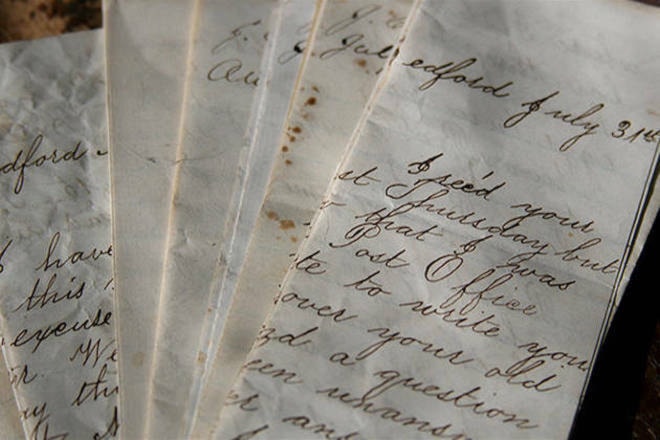 dford
I have
this
excuse
We
J.
Au
J.
Jul
edford July 31st
I rec'd your
st Thursday but
that I was
Post Office
te to write you
over your old
d a question
een unans
er an